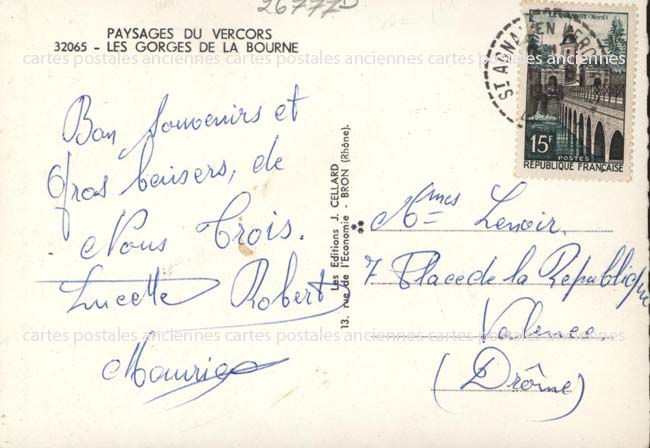 26777D
PAYSAGES DU VERCORS
32065 - LES GORGES DE LA BOURNE
Bon Souvenirs et
Gros baisers, de
Nous Trois.
Lucette Robert
Maurice
Les Editions J. CELLARD
13. rue de l'Economie - BRON (Rhône).
**
ST AGNAN EN VERCORS
LE QUESNOY (Nord)
15F
POSTES
REPUBLIQUE FRANÇAISE
Mmes Lenoir.
7 Place de la République
Valence.
(Drôme)
cartes postales anciennes cartes postales anciennes cartes postales anciennes
cartes postales anciennes cartes postales anciennes cartes postales anciennes